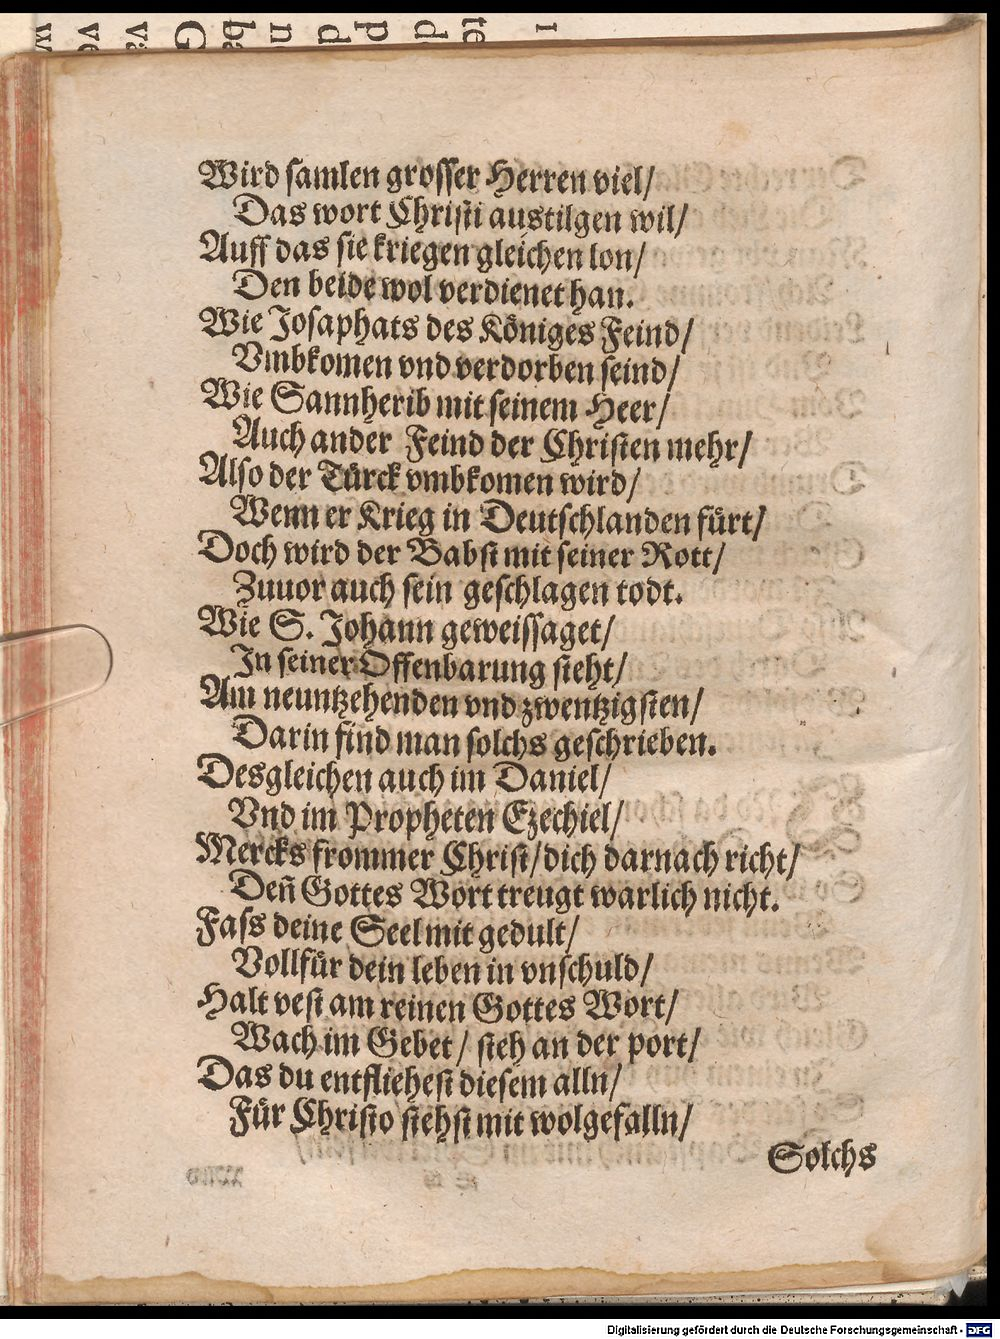 Wird samlen grosser Herren viel/
Das wort Christi austilgen wil/
Auff das sie kriegen gleichen lon/
Den beide wol verdienet han.
Wie Josaphats des Königes Feind/
Vmbkomen vnd verdorben seind/
Wie Sannherib mit seinem Heer/
Auch ander Feind der Christen mehr/
Also der Türck vmbkomen wird/
Wenn er Krieg in Deutschlanden fürt/
Doch wird der Babst mit seiner Rott/
Zuuor auch sein geschlagen todt.
Wie S. Johann geweissaget/
In seiner Offenbarung steht/
Am neuntzehenden vnd zwentzigsten/
Darin find man solchs geschrieben.
Desgleichen auch im Daniel/
Vnd im Propheten Ezechiel/
Mercks frommer Christ/dich darnach richt/
Deñ Gottes Wort treugt warlich nicht.
Fass deine Seel mit gedult/
Vollfür dein leben in vnschuld/
Halt vest am reinen Gottes Wort/
Wach im Gebet/ steh an der port/
Das du entfliehest diesem alln/
Für Christo stehst mit wolgefalln/
Solchs
Digitalisierung gefördert durch die Deutsche Forschungsgemeinschaft - DFG